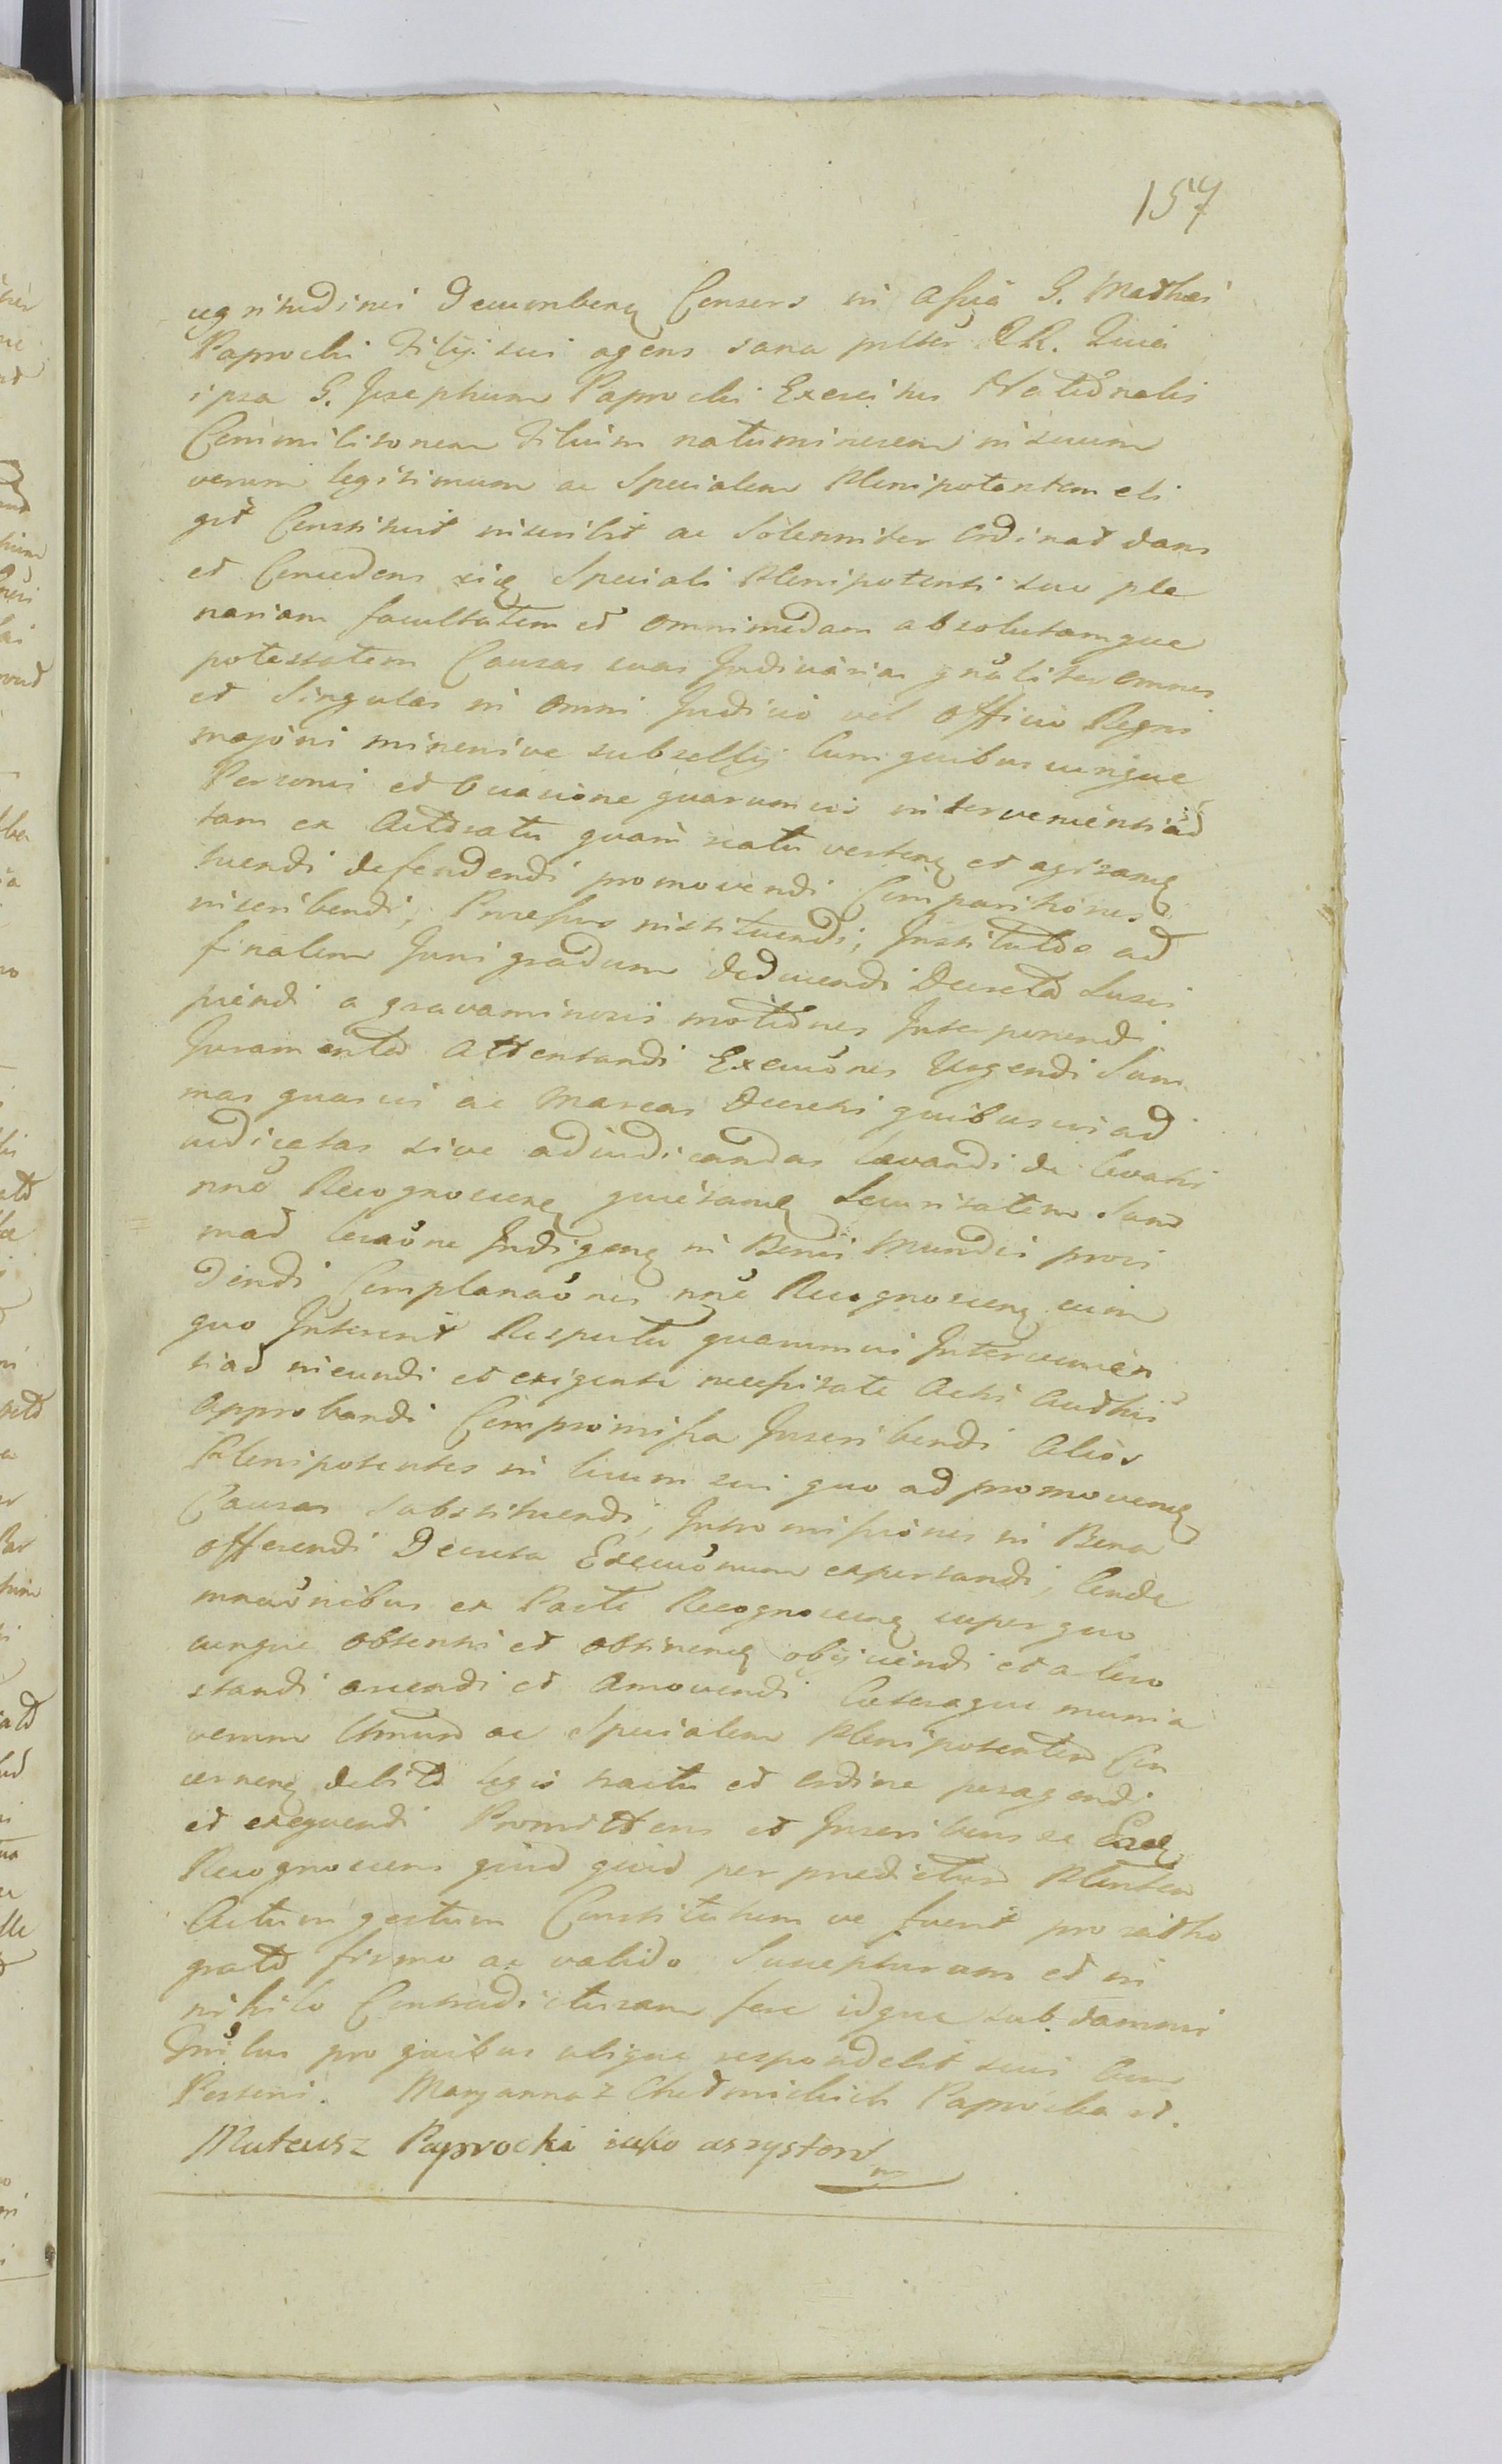 157
ægritudinis decumbens Consors in assia G. Mathæi
Paprocki Filij sui agens sana pntter RR. Quia
ipsa G. Josephum Paprocki Exercitus Nationalis
Commilitonem Filium natu minorem in suum
verum legitimum ac Specialem Plenipotentem eli
git Constituit inscribit ac Solenniter Ordinat dans
et Concedens eidem Speciali Plenipotenti suo ple
nariam facultatem et omnimodam absolutamque
potestatem Causas suas Judiciarias gnaliter omnes
et Singulas in omni Judicio vel Officio Regni
majoris minorisve subsellij cum quibuscunque
Personis et Occasione quarumvis intervenientiad
tam ex Actoratu quam reatu verten et agitan
tuendi defendendi promovendi Comparitiones
inscribendi, Processus instituendi, Institutos ad
finalem Juris gradum deducendi Decreta Susci
piendi a gravaminosis motiones Interponendi
Juramenta Attentandi Executiones Urgendi Sum
mas quasvis ac Marcas Decretis quibusvis ad
judicatas sive adjudicandas levandi de levatis
nne Recognoscen quietan Securitatem Sum
mad levaone Indigen in Bonis Mundis provi
dendi Complanaones nne Recognoscen cum
quo Intererit Respectu quarumvis Intervenien
tiad ineundi et exigente necessitate Actis Authcis
Approbandi Compromissa Inscribendi Alios
Plenipotentes in locum sui quo ad promoven
Causas Substituendi, Intromissiones in Bona
Offerendi Decreta Execuonum expertandi, Conde
mnaonibus ex Parte Recognoscen super quo
cunque obtentis et obtinen objiciendi et a loco
standi arcendi et Amovendi Cæteraque munia
verum Ltmum ac Specialem Plenipotentem Con
cernen debito legis tractu et Ordine peragendi
et exequendi Promittens et Inscribens se Eadem
Recognoscens quid quid per prædictum Plentem
Actum gestum Constitutum ve fuerit pro ratho
grato firmo ac valido Suscepturam et in
nihilo Contradicturam fore idque sub damnis
Trlibus pro quibus ubique respondebit suis cum
Possoris. Maryanna z Paprocka st.
Mateusz Paprocki jako assystent